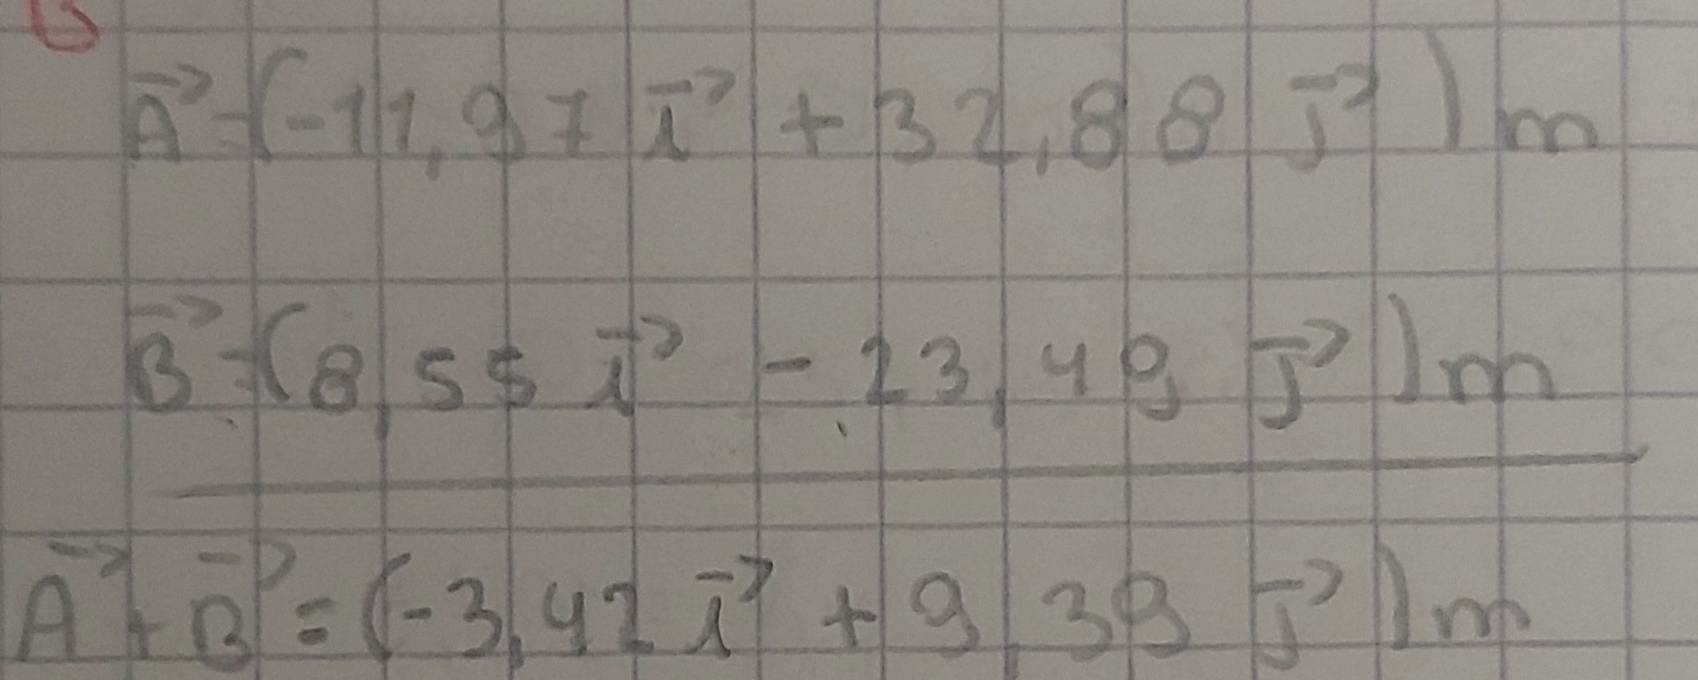 A⃗ = (-11,97 i⃗ + 32,88 j⃗) m
B⃗ = (8,55 i⃗ - 23,49 j⃗) m
A⃗ + B⃗ = (-3,42 i⃗ + 9,39 j⃗) m